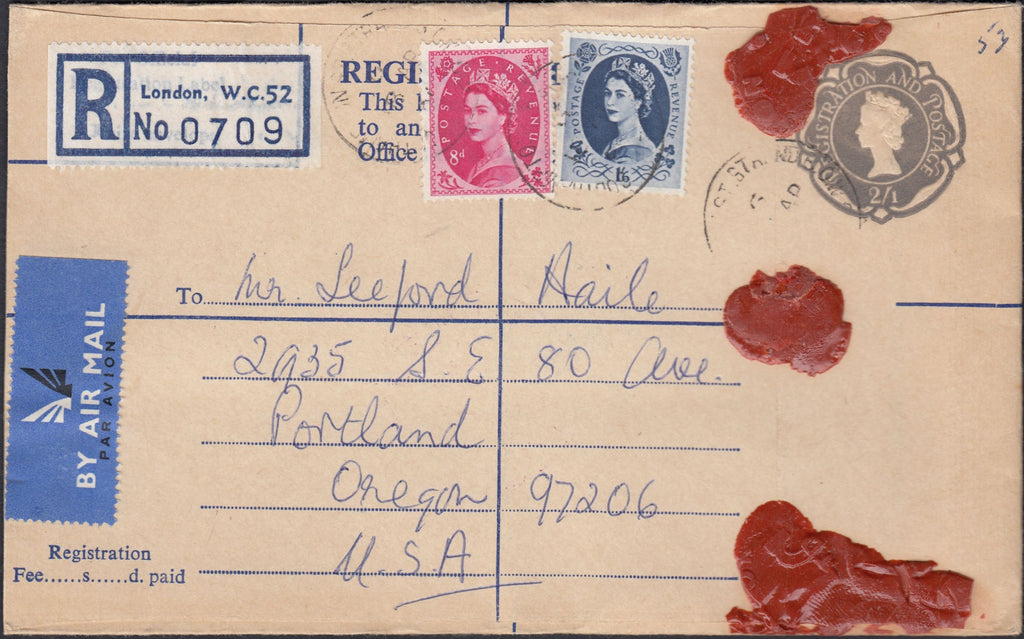 53
R
London, W.C.52
No 0709
REGI
This l
to an
Office
POSTAGE REVENUE
8d
POSTAGE REVENUE
1/6
REGISTRATION AND POSTAGE
2/1
To Mr. Leeford Haile
2935 S.E 80 Ave.
Portland
Oregon 97206
U.S.A
BY AIR MAIL
PAR AVION
Registration
Fee......s......d. paid